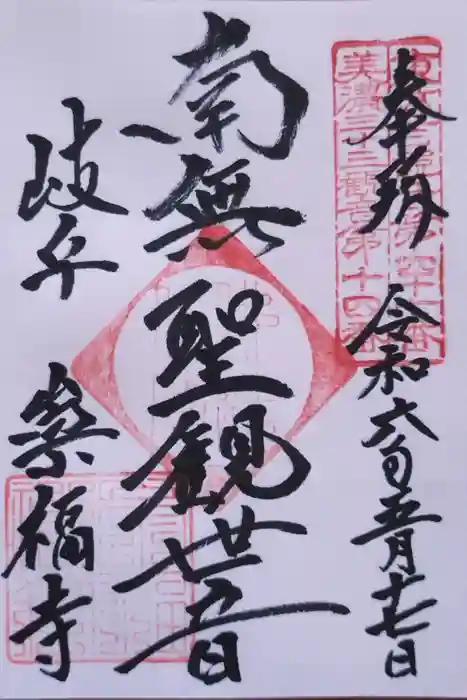 奉拝 令和六年五月十七日
美濃三十三観音第十四番
南無聖観世音
岐阜 崇福寺